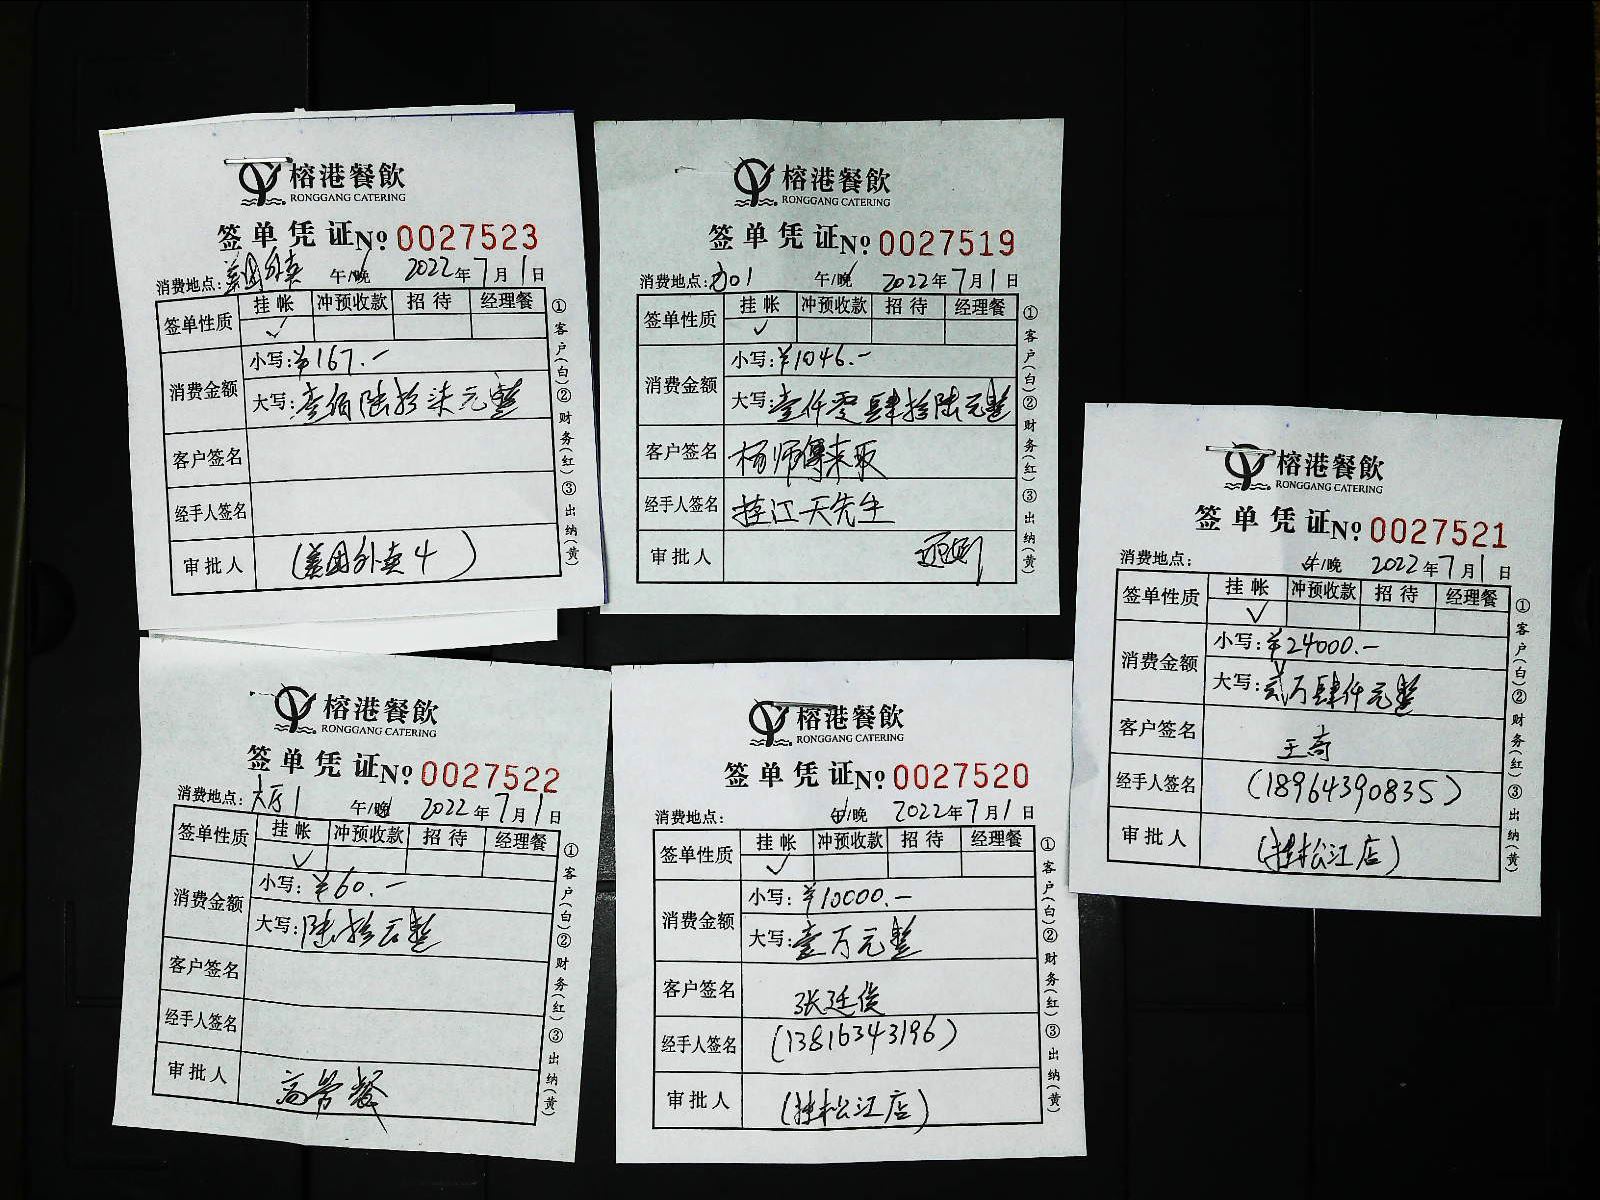 榕港餐飲
RONGGANG CATERING
签单凭证 №0027523
消费地点:美团外卖 午/晚 2022年7月1日
签单性质 挂帐 冲预收款 招待 经理餐
✓
消费金额 小写:¥167.—
大写:壹佰陆拾柒元整
客户签名
经手人签名
审批人 (美团外卖4)
①客户(白)②财务(红)③出纳(黄)
榕港餐飲
RONGGANG CATERING
签单凭证 №0027519
消费地点: 午/晚 2022年7月1日
签单性质 挂帐 冲预收款 招待 经理餐
✓
消费金额 小写:¥1046.—
大写:壹仟零肆拾陆元整
客户签名 杨师傅来取
经手人签名 挂江天先生
审批人
①客户(白)②财务(红)③出纳(黄)
榕港餐飲
RONGGANG CATERING
签单凭证 №0027521
消费地点: 午/晚 2022年7月1日
签单性质 挂帐 冲预收款 招待 经理餐
✓
消费金额 小写:¥24000.—
大写:贰万肆仟元整
客户签名 王奇
经手人签名 (18964390835)
审批人 (挂松江店)
①客户(白)②财务(红)③出纳(黄)
榕港餐飲
RONGGANG CATERING
签单凭证 №0027522
消费地点:大厅1 午/晚 2022年7月1日
签单性质 挂帐 冲预收款 招待 经理餐
✓
消费金额 小写:¥60.—
大写:陆拾元整
客户签名
经手人签名
审批人 高管餐
①客户(白)②财务(红)③出纳(黄)
榕港餐飲
RONGGANG CATERING
签单凭证 №0027520
消费地点: 午/晚 2022年7月1日
签单性质 挂帐 冲预收款 招待 经理餐
✓
消费金额 小写:¥10000.—
大写:壹万元整
客户签名 张廷俊
经手人签名 (13816343196)
审批人 (挂松江店)
①客户(白)②财务(红)③出纳(黄)